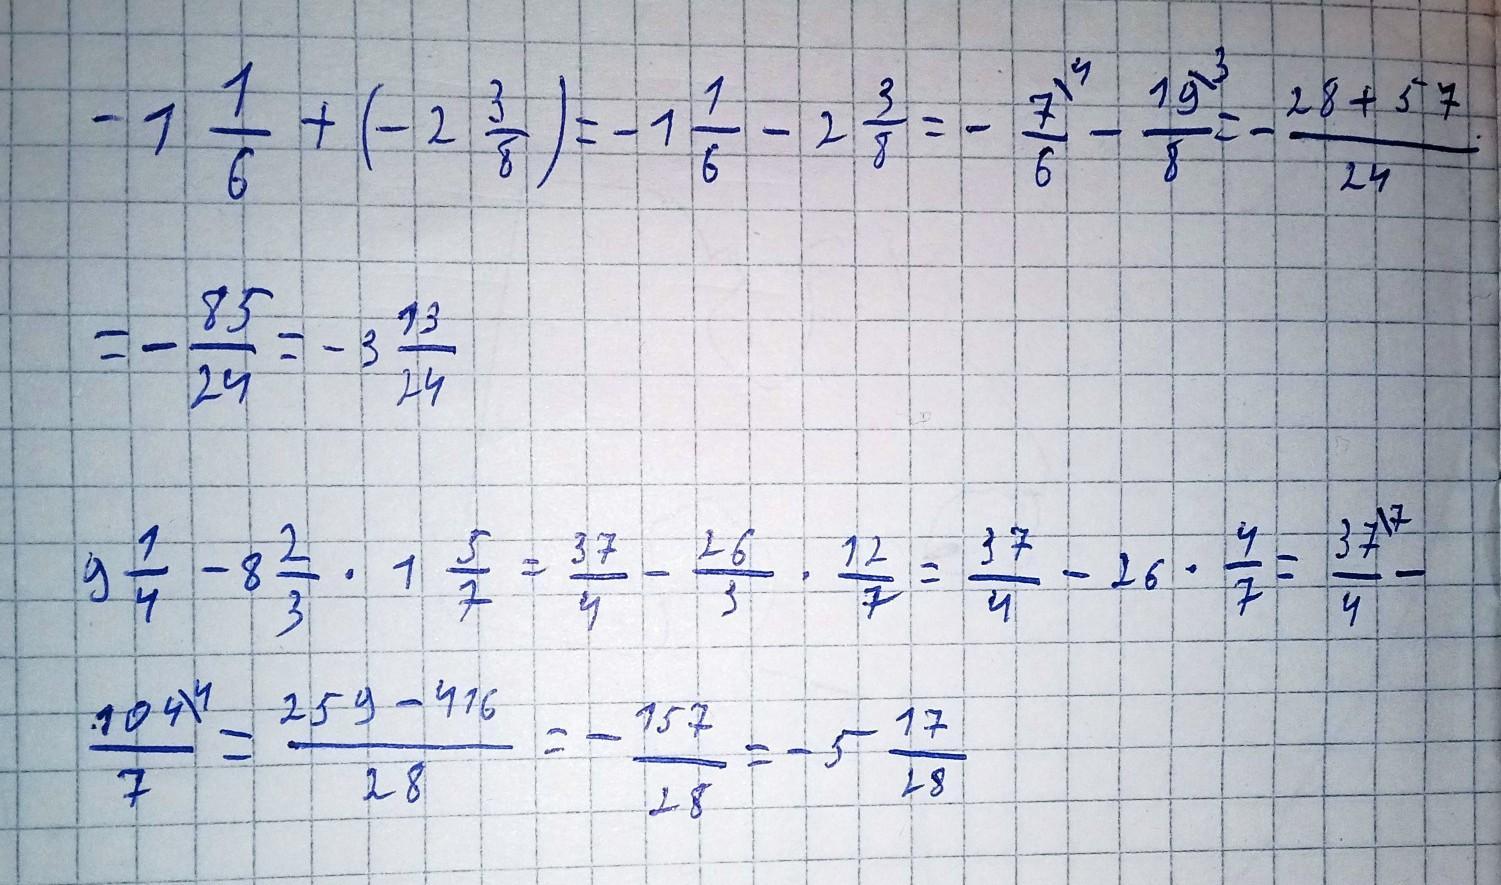 -1 1/6 + (-2 3/8) = -1 1/6 - 2 3/8 = - 7\4/6 - 19\3/8 = - 28+57/24
= - 85/24 = -3 13/24
9 1/4 - 8 2/3 · 1 5/7 = 37/4 - 26/3 · 12/7 = 37/4 - 26 · 4/7 = 37\7/4 -
104\4/7 = 259-416/28 = - 157/28 = -5 17/28